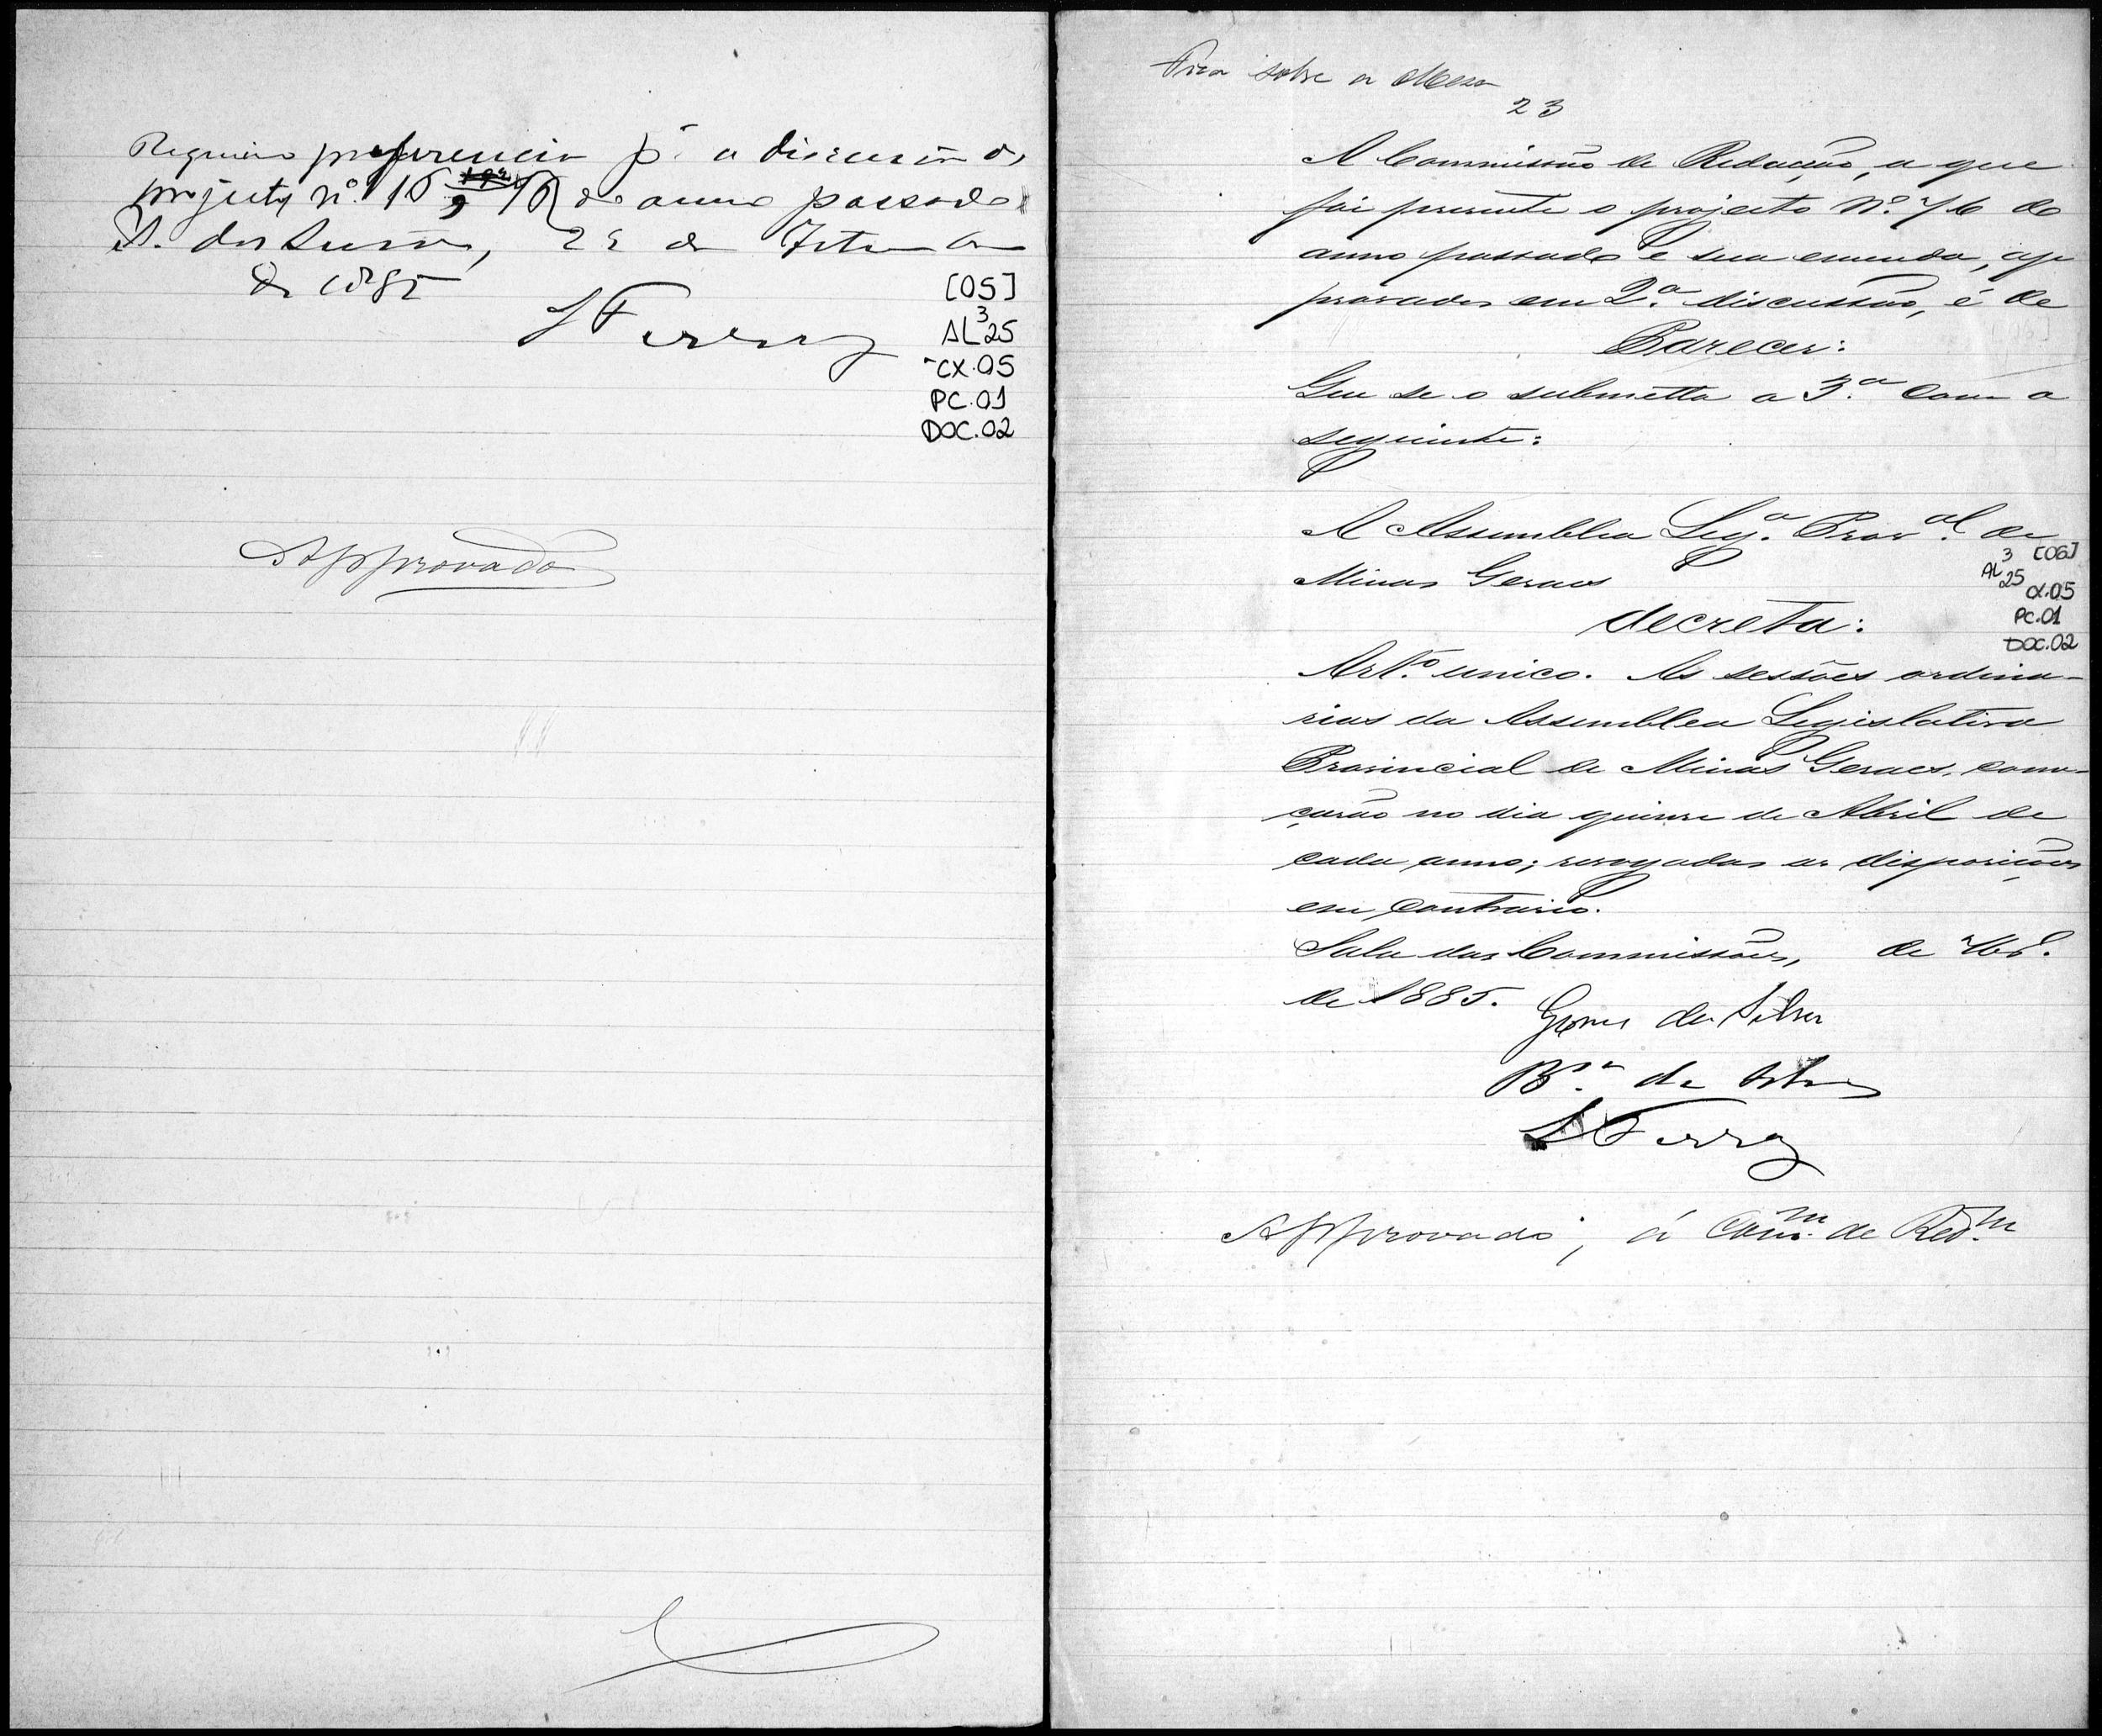 Requeiro preferencia pª a discussão do
projecto nº 76 do anno passado
S. das Sessões, 22 de Setembro
de 1885
S Ferraz
[05]
AL 3 25
CX.05
PC.01
DOC.02
Approvado
Fica sobre a Mesa
23
A Commissão de Redacção, a que
foi presente o projecto Nº 76 do
anno passado e sua emenda, ap
provados em 2ª discussão, é de
Parecer:
Que se o submetta a 3ª com a
seguinte:
A Assemblea Legª Provªl de
Minas Geraes
decreta:
[06]
AL 3 25
CX.05
PC.01
DOC.02
Artº unico. As sessões ordina-
rias da Assemblea Legislativa
Provincial de Minas Geraes, come-
çarão no dia quinse de Abril de
cada anno; revogadas as disposições
em contrario.
Sala das Commissões, de
de 1885.
Gomes da Silva
da Silva
S Ferraz
Approvado, á Comm. de Redm